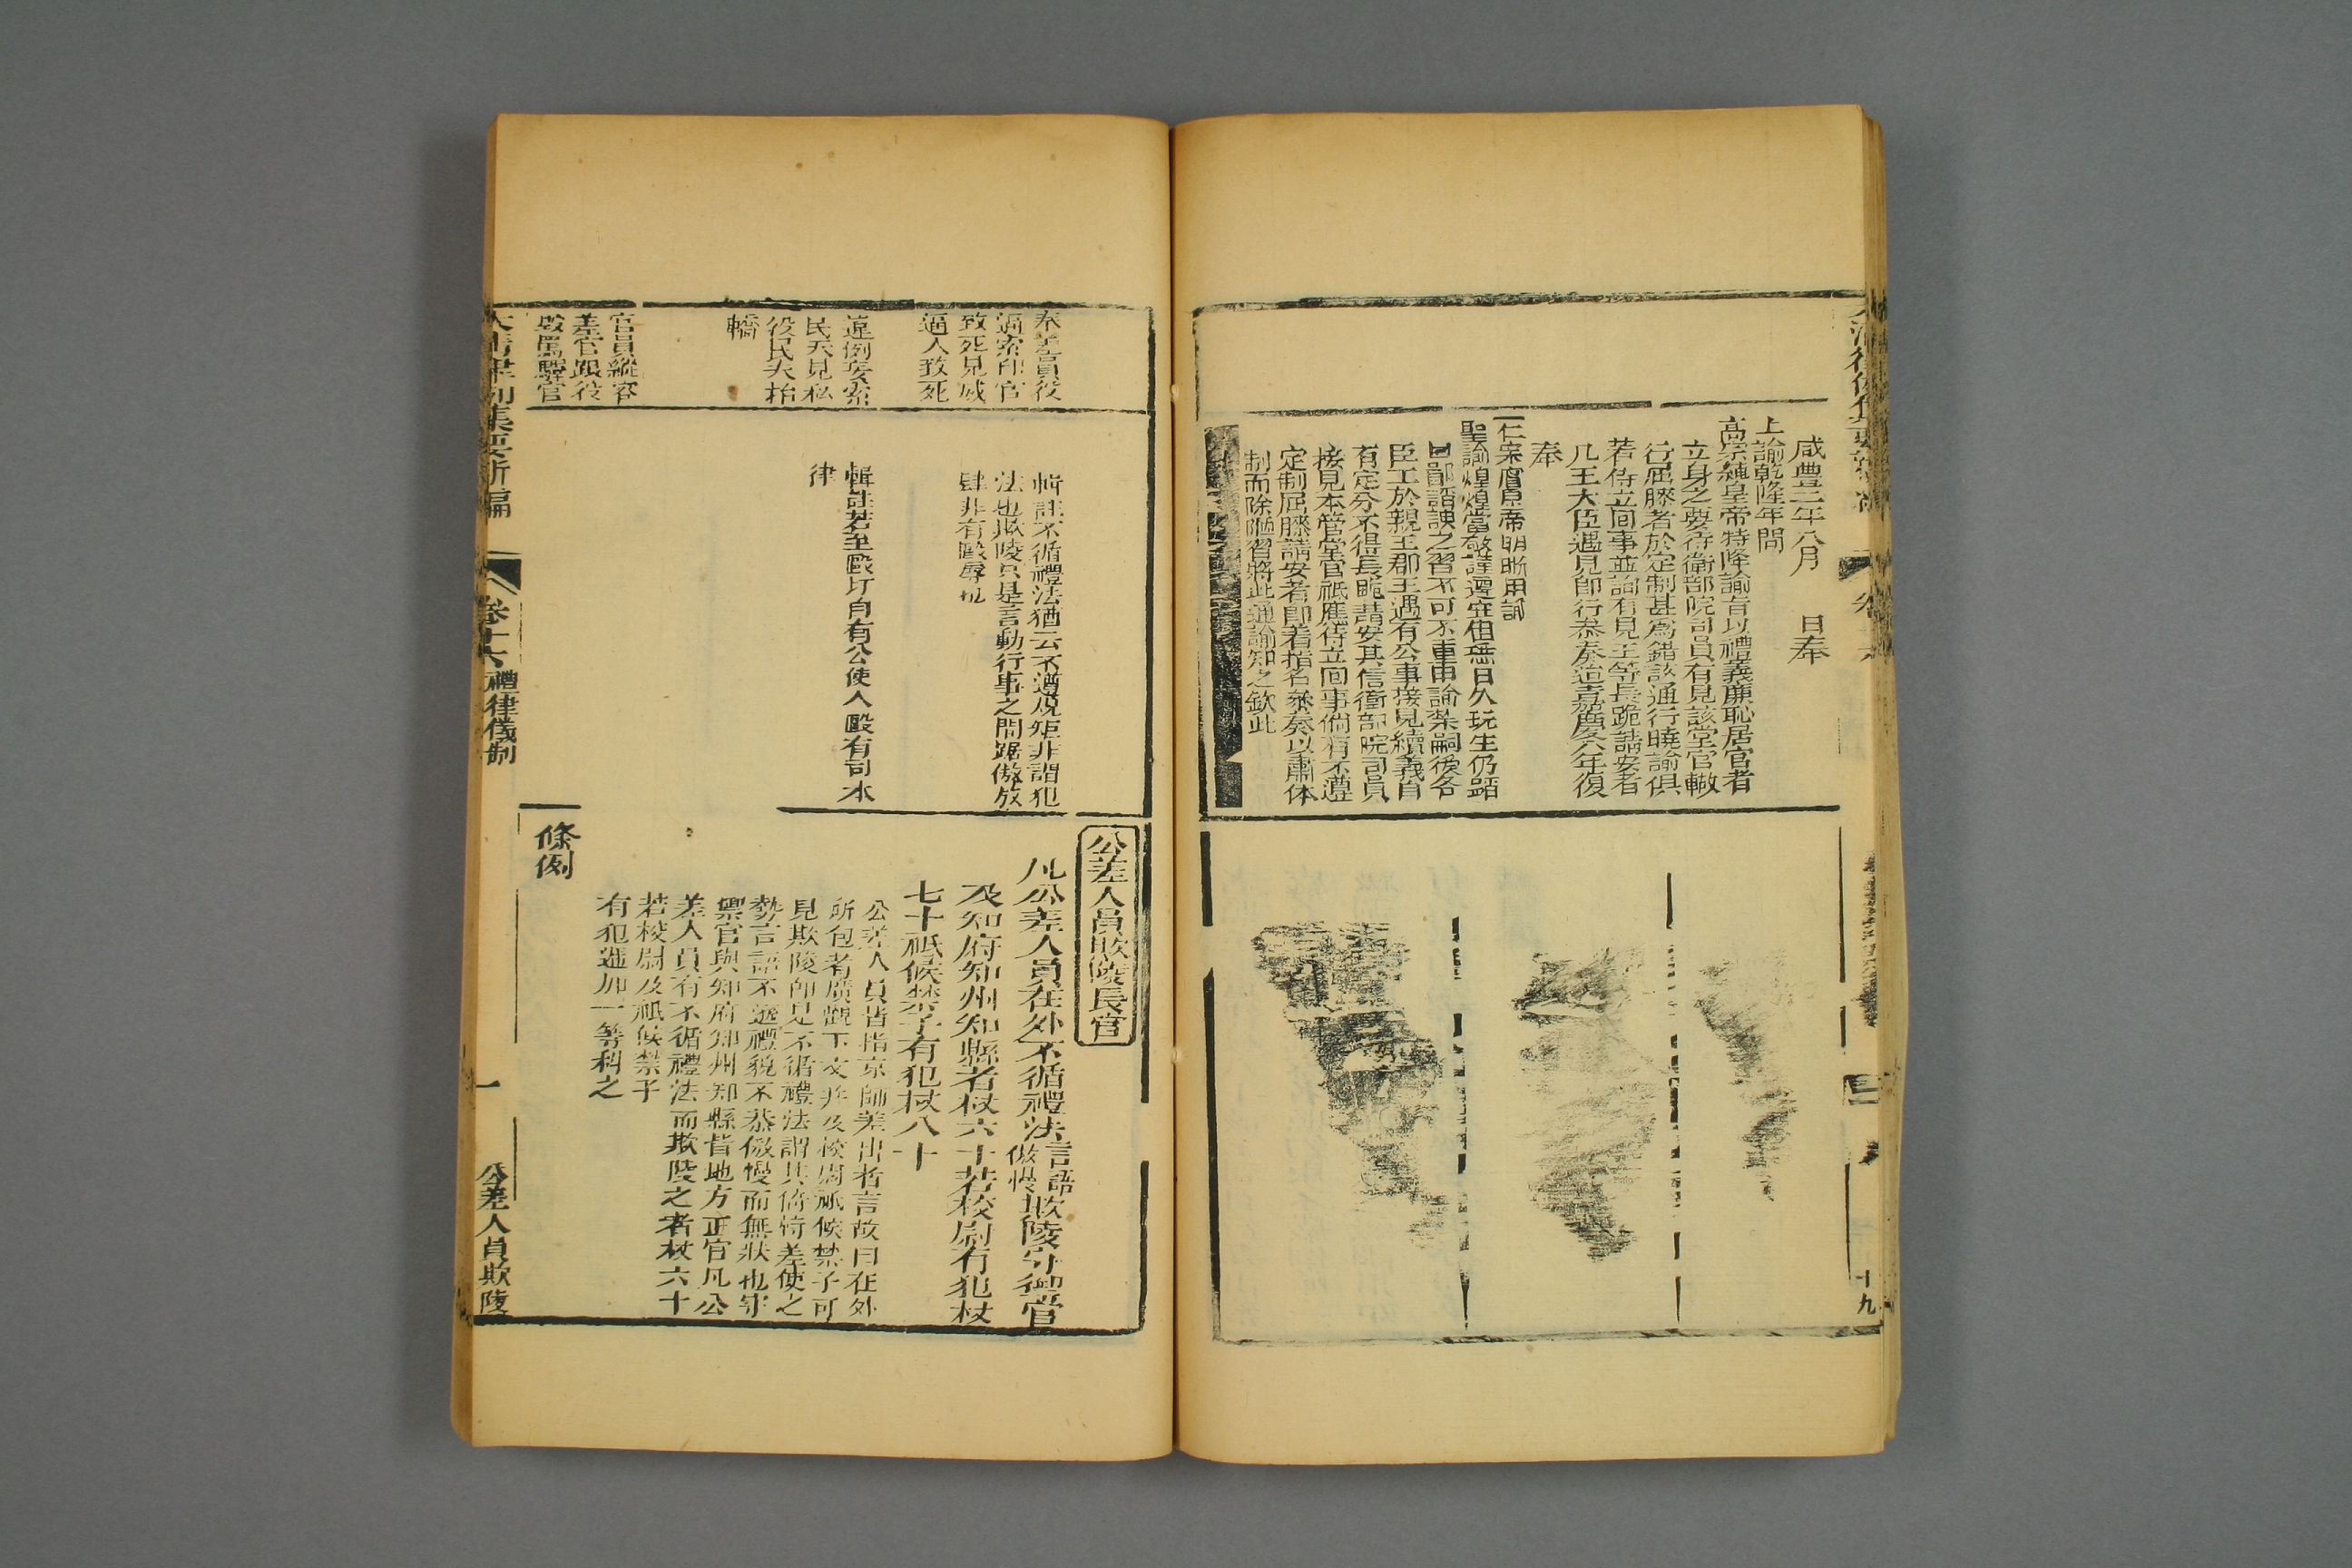 咸豐二年八月　日奉
上諭乾隆年間
高宗純皇帝特降諭旨以禮義廉恥居官者
立身之要侍衛部院司員有見該堂官輙
行屈膝者於定制甚爲錯誤通行曉諭俱
若侍立回事並諭有見王等長跪請安者
凡王大臣遇見卽行叅奏迨嘉慶六年復
奉
仁宗睿皇帝明晰用誡
聖諭煌煌當敬謹遵
諂諛之習不可不重申諭禁嗣後各
臣工於親王郡王遇有公事接見續義自
有定分不得長跪請安其侍衛部院司員
接見本管堂官祗應侍立回事倘有不遵
定制屈膝請安者卽着指名叅奏以肅体
制而除陋習將此通諭知之欽此
十九
奉差員役
逼索印官
致死見威
逼人致死
違例妄索
民夫見私
役民夫抬
轎
官員縱容
差官跟役
毀罵驛官
輯註不循禮法猶云不遵規矩非謂犯
法也欺陵只是言動行事之間踞傲放
肆非有毆辱也
輯註若至毆打自有公使人毆有司本
律
公差人員欺陵長官
凡公差人員在外不循禮法言語傲慢欺陵守禦官
及知府知州知縣者杖六十若校尉有犯杖
七十祗候禁子有犯杖八十
公差人員皆指京師差出者言故曰在外
所包者廣觀下文并及校尉祗候禁子可
見欺陵卽是不循禮法謂其倚恃差使之
勢言語不遜禮貌不恭傲慢而無狀也守
禦官與知府知州知縣皆地方正官凡公
差人員有不循禮法而欺陵之者杖六十
若校尉及祗候禁子
有犯遞加一等科之
條例
大清律例集要新編
卷十六禮律儀制
一
公差人員欺陵